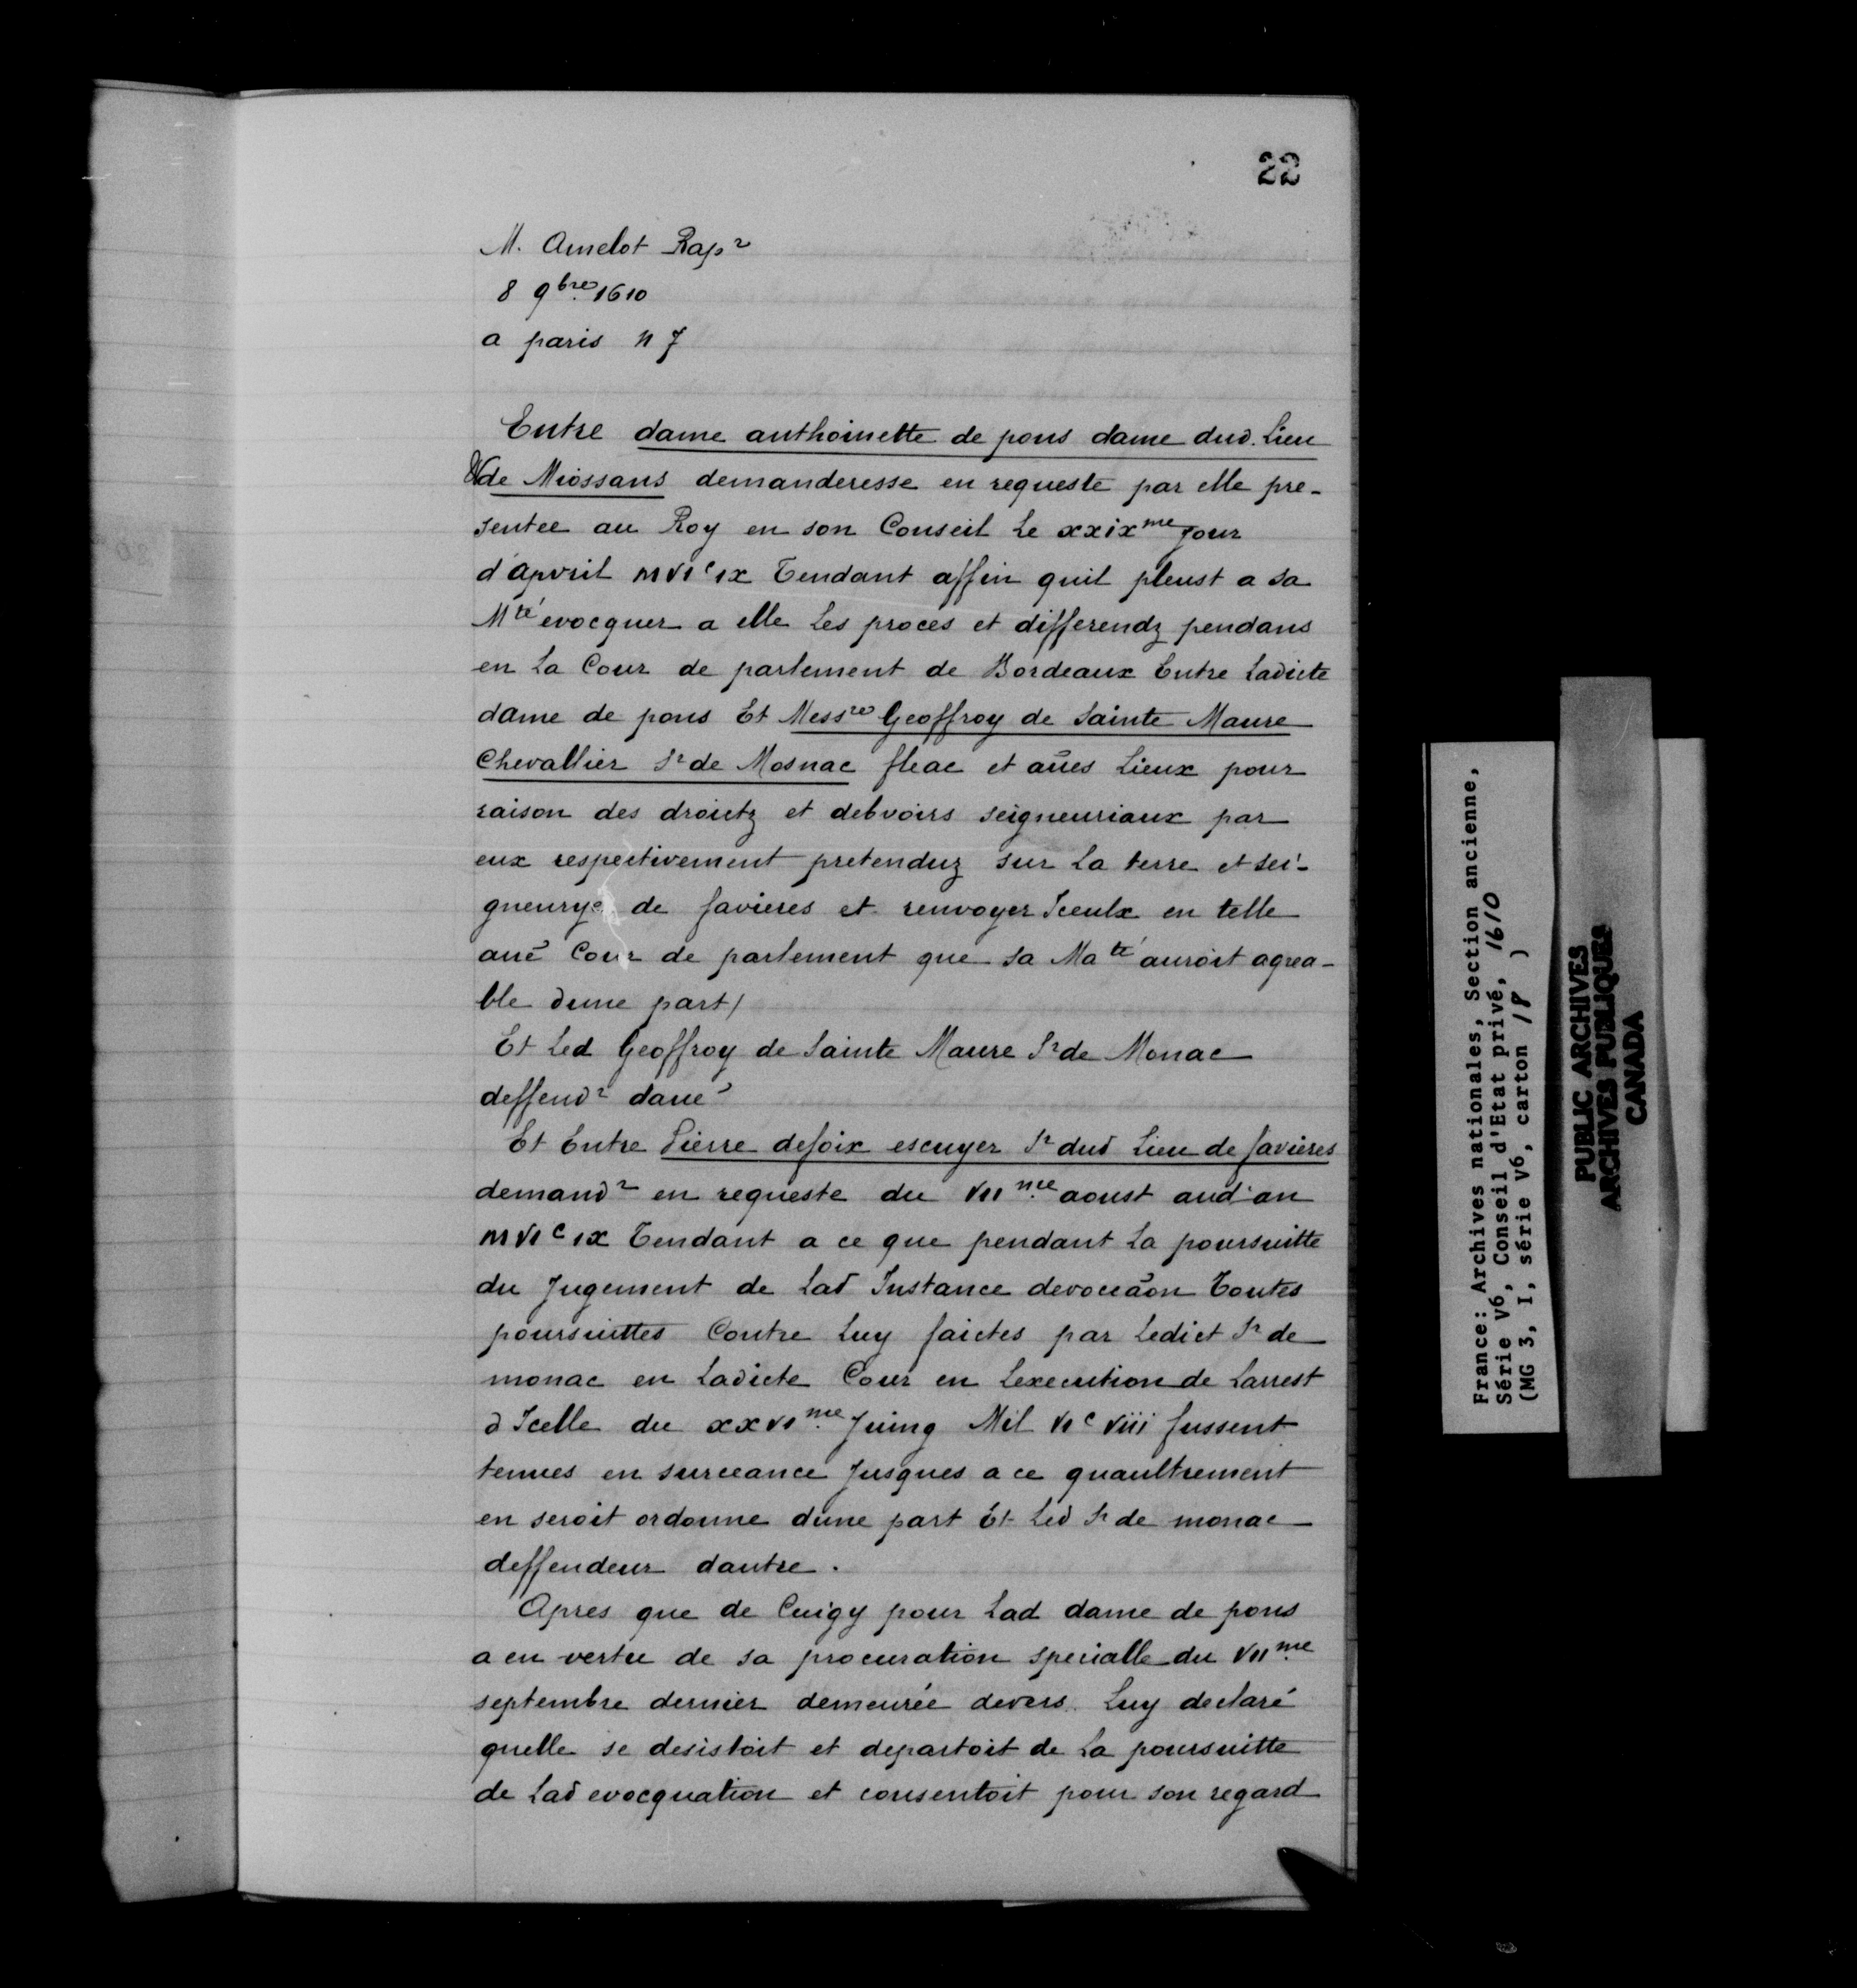 22
M. Amelot Rapr
8 9bre 1610
a paris n 7
Entre dame anthoinette de pons dame dud. Lieu
& de Miossans demanderesse en requeste par elle pre-
sentee au Roy en son Conseil Le xxixme Jour
d'apvril mVIcix Tendant affin quil pleust a sa
Mté evocquer a elle Les procés et differendz pendans
en La Cour de parlement de Bordeaux Entre Ladicte
dame de pons Et Messre Geoffroy de Sainte Maure
Chevallier Sr de Mosnac fleac et aūes Lieux pour
raison des droictz et debvoirs seigneuriaux par
eux respectivement pretenduz sur La terre et sei-
gneurye de favieres et renvoyer Iceulx en telle
auē Cour de parlement que sa Maté auroit agrea-
ble dune part/
Et Led Geoffroy de Sainte Maure Sr de Monac
deffendr daué
Et Entre Pierre defoix escuyer Sr dud Lieu de favieres
demandr en requeste du VIIme aoust aud an
mVIcix Tendant a ce que pendant La poursuitte
du Jugement de Lad Instance devocāon Toutes
poursuittes Contre Luy faictes par Ledict Sr de
monac en Ladicte Cour en Lexecution de Larrest
d Icelle du xxvime Juing Mil VIc Viii fussent
tenues en surceance Jusques a ce quaultrement
en seroit ordonne dune part Et Led Sr de monac
deffendeur dautre.
Apres que de Cuigy pour Lad dame de pons
a en vertu de sa procuration specialle du VIIme
septembre dernier demeurée devers Luy declaré
quelle se desistoit et departoit de La poursuitte
de Lad evocquation et consentoit pour son regard
France: Archives nationales, Section ancienne,
Série V6, Conseil d'Etat privé, 1610
(MG 3, I, série V6, carton 18 )
PUBLIC ARCHIVES
ARCHIVES PUBLIQUES
CANADA